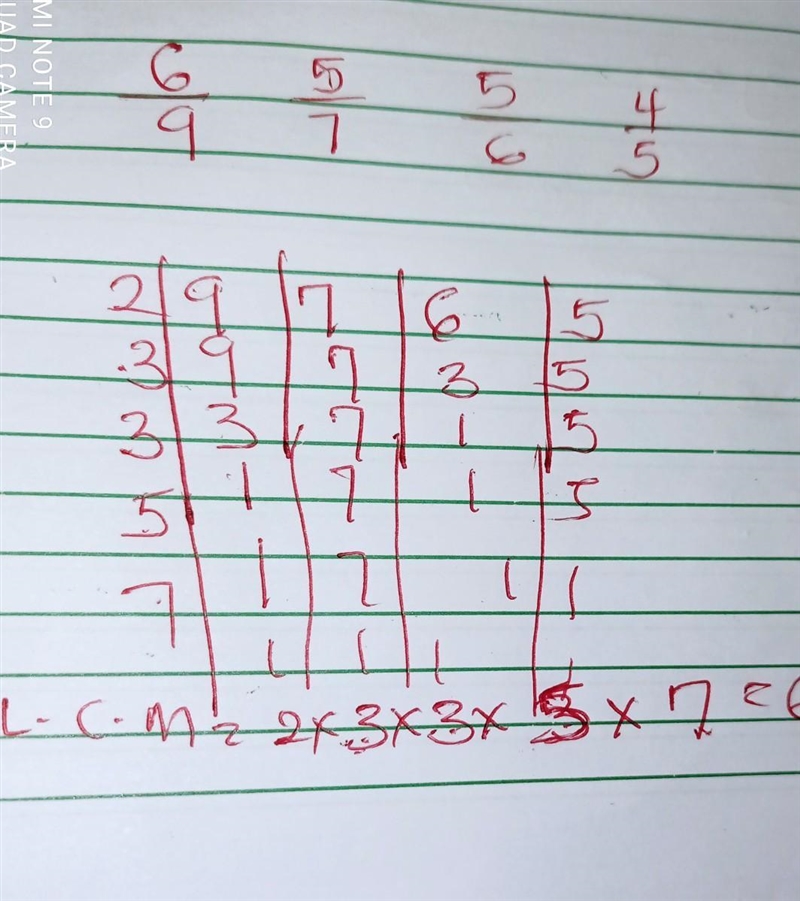 6/9 5/7 5/6 4/5
2 9 7 6 5
3 9 7 3 5
3 3 7 1 5
5 1 7 1 5
7 1 7 1 1
1 1 1 1
L.C.M = 2×3×3×5×7 = 6
MI NOTE 9
UAD CAMERA